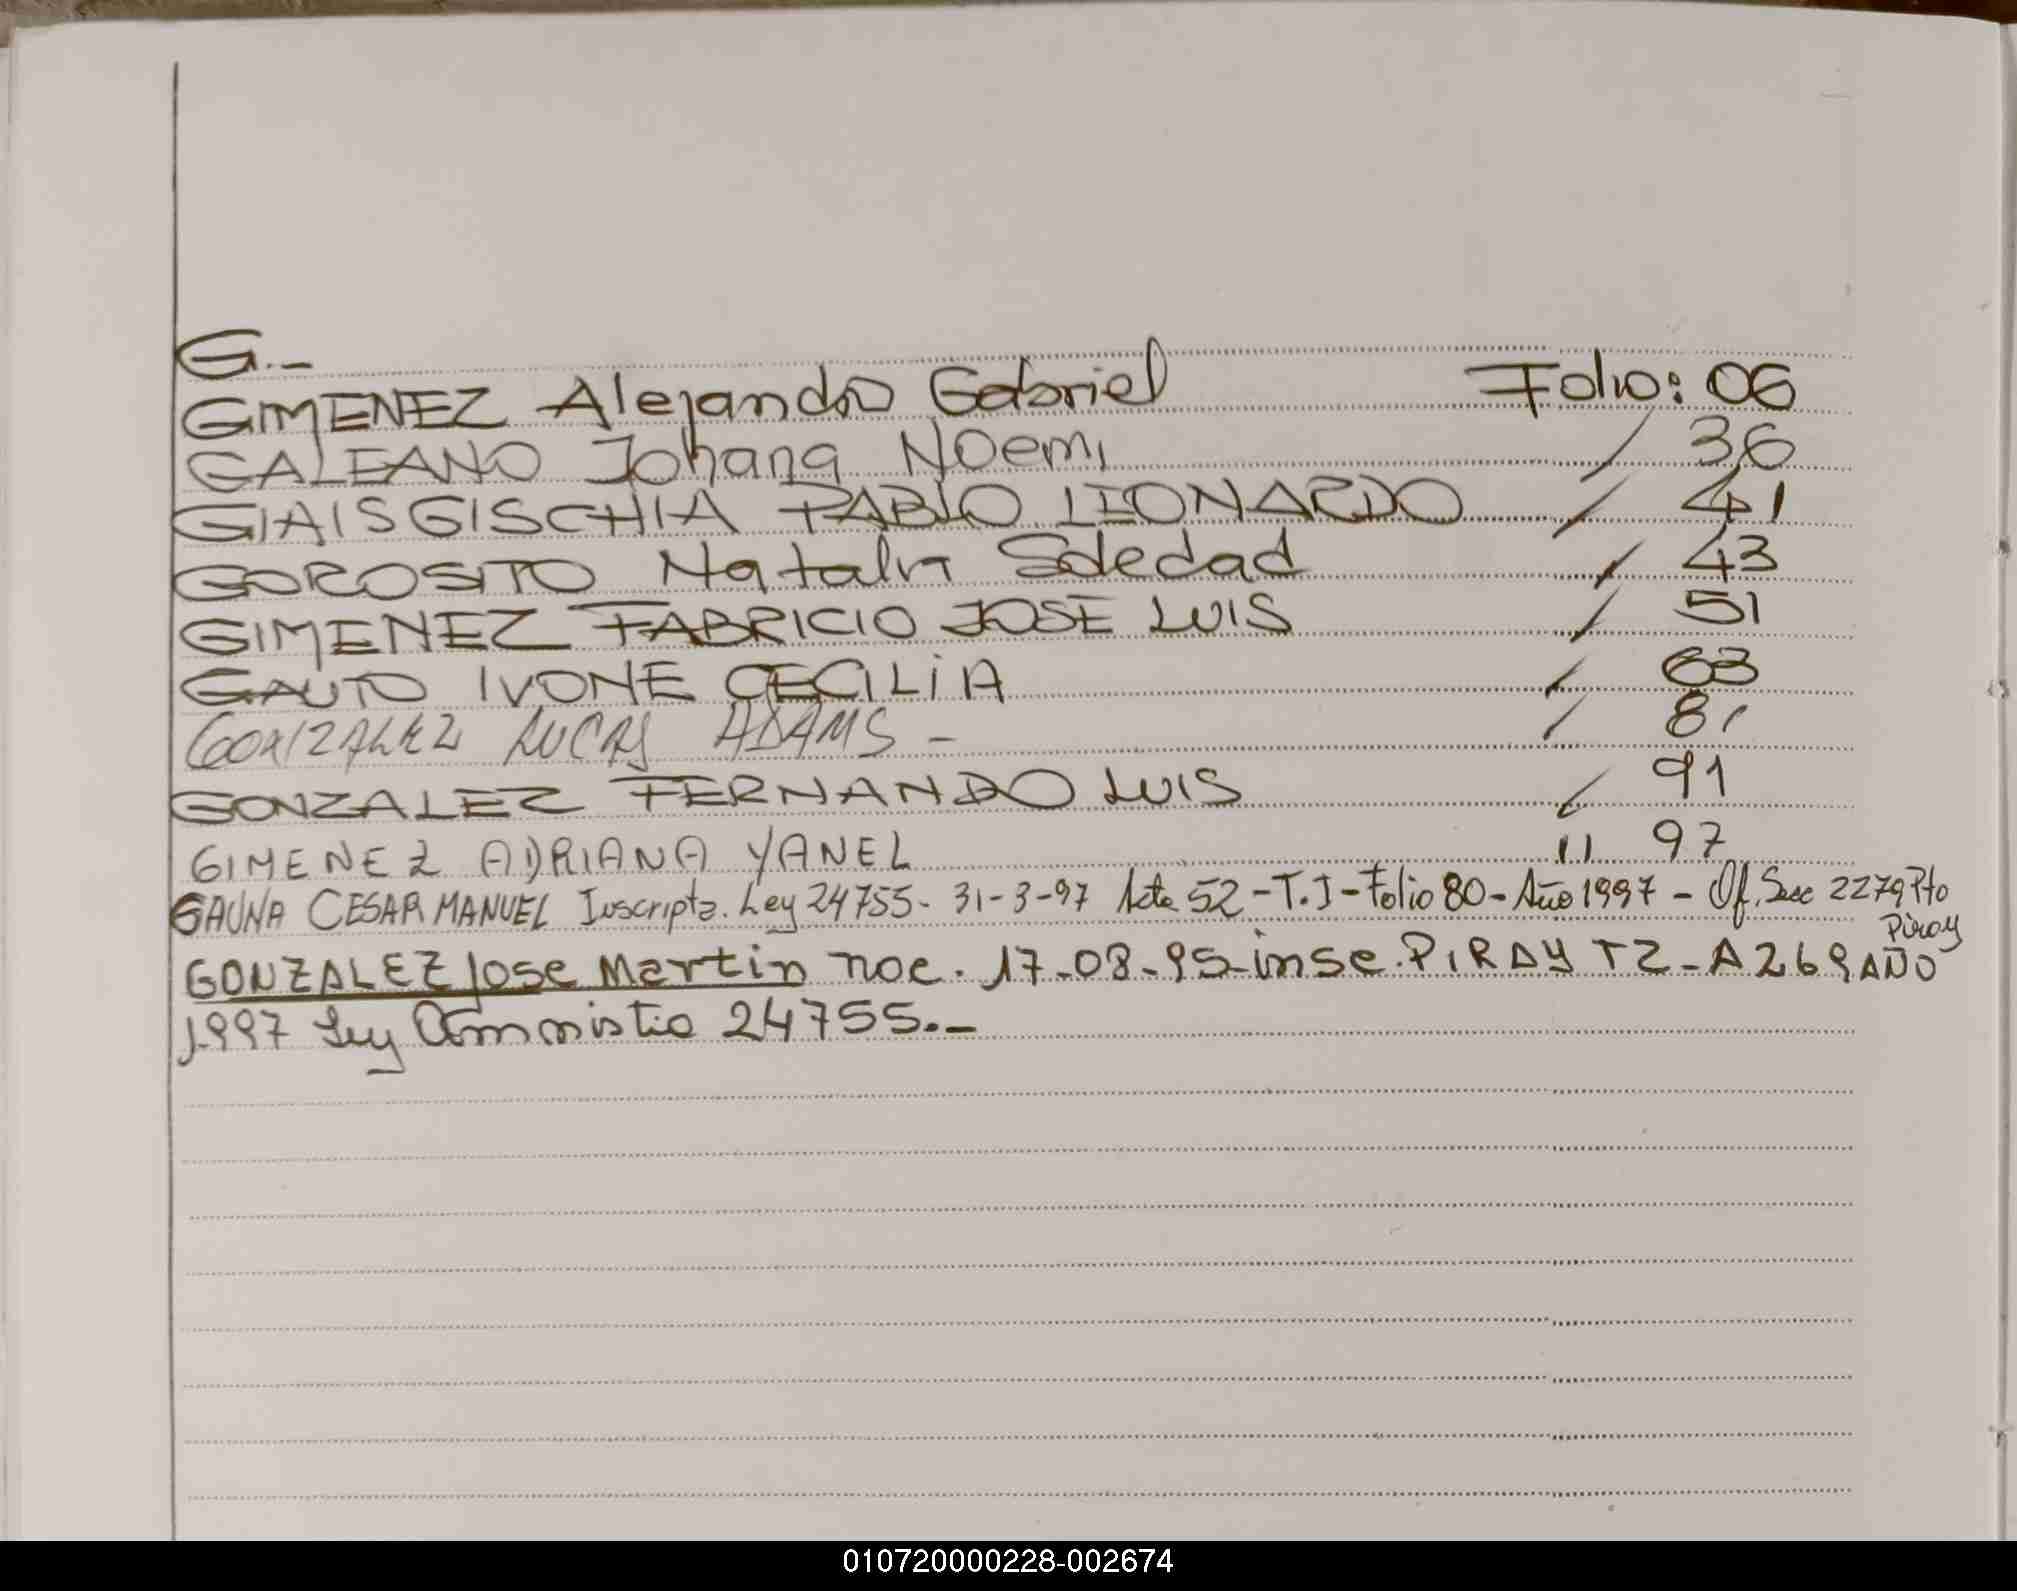 G.-
GIMENEZ Alejandro Gabriel Folio: 06
GALEANO Johana Noemi / 36
GIAISGISCHIA PABLO LIONARDO / 41
GOROSITO Natalia Soledad / 43
GIMENEZ FABRICIO JOSE LUIS / 51
GAUTO IVONE CECILIA / 63
GONZALEZ LUCAS ADAMS - / 81
GONZALEZ FERNANDO LUIS / 91
GIMENEZ ADRIANA YANEL 11 97
GAUNA CESAR MANUEL Inscripta. Ley 24755- 31-3-97 Acta 52-T.I-Folio 80-Año 1997 - Of. Secc 2279 Pto
Piray
GONZALEZ Jose Martin noc. 17-08-95-insc. PIRAY T2-A269 AÑO
1997 Ley Amnistia 24755.-
010720000228-002674